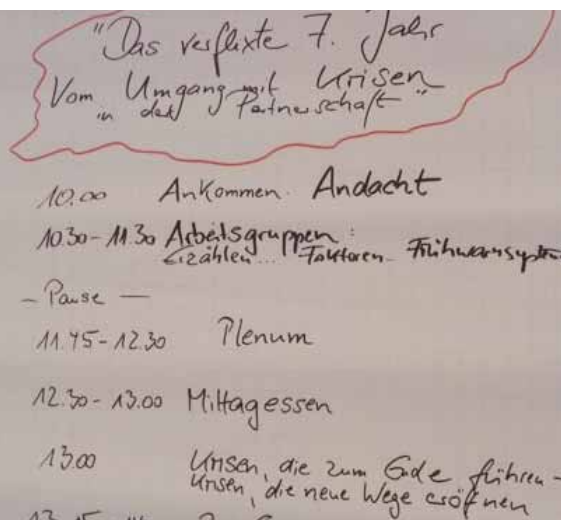 "Das verflixte 7. Jahr
Vom Umgang mit Krisen
in der Partnerschaft"
10.00 Ankommen. Andacht
10.30-11.30 Arbeitsgruppen:
Erzählen... Faktoren- Frühwarnsystem
- Pause -
11.45-12.30 Plenum
12.30-13.00 Mittagessen
13.00 Krisen, die zum Ende führen-
Krisen, die neue Wege eröffnen